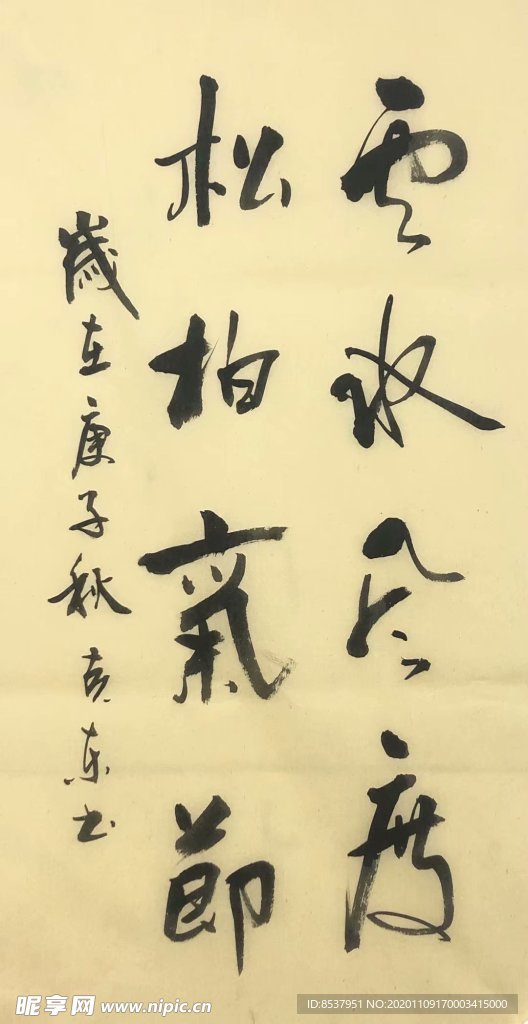 雲水風度
松柏氣節
歲在庚子秋 東书
昵享网 www.nipic.cn
ID:8537951 NO:20201109170003415000